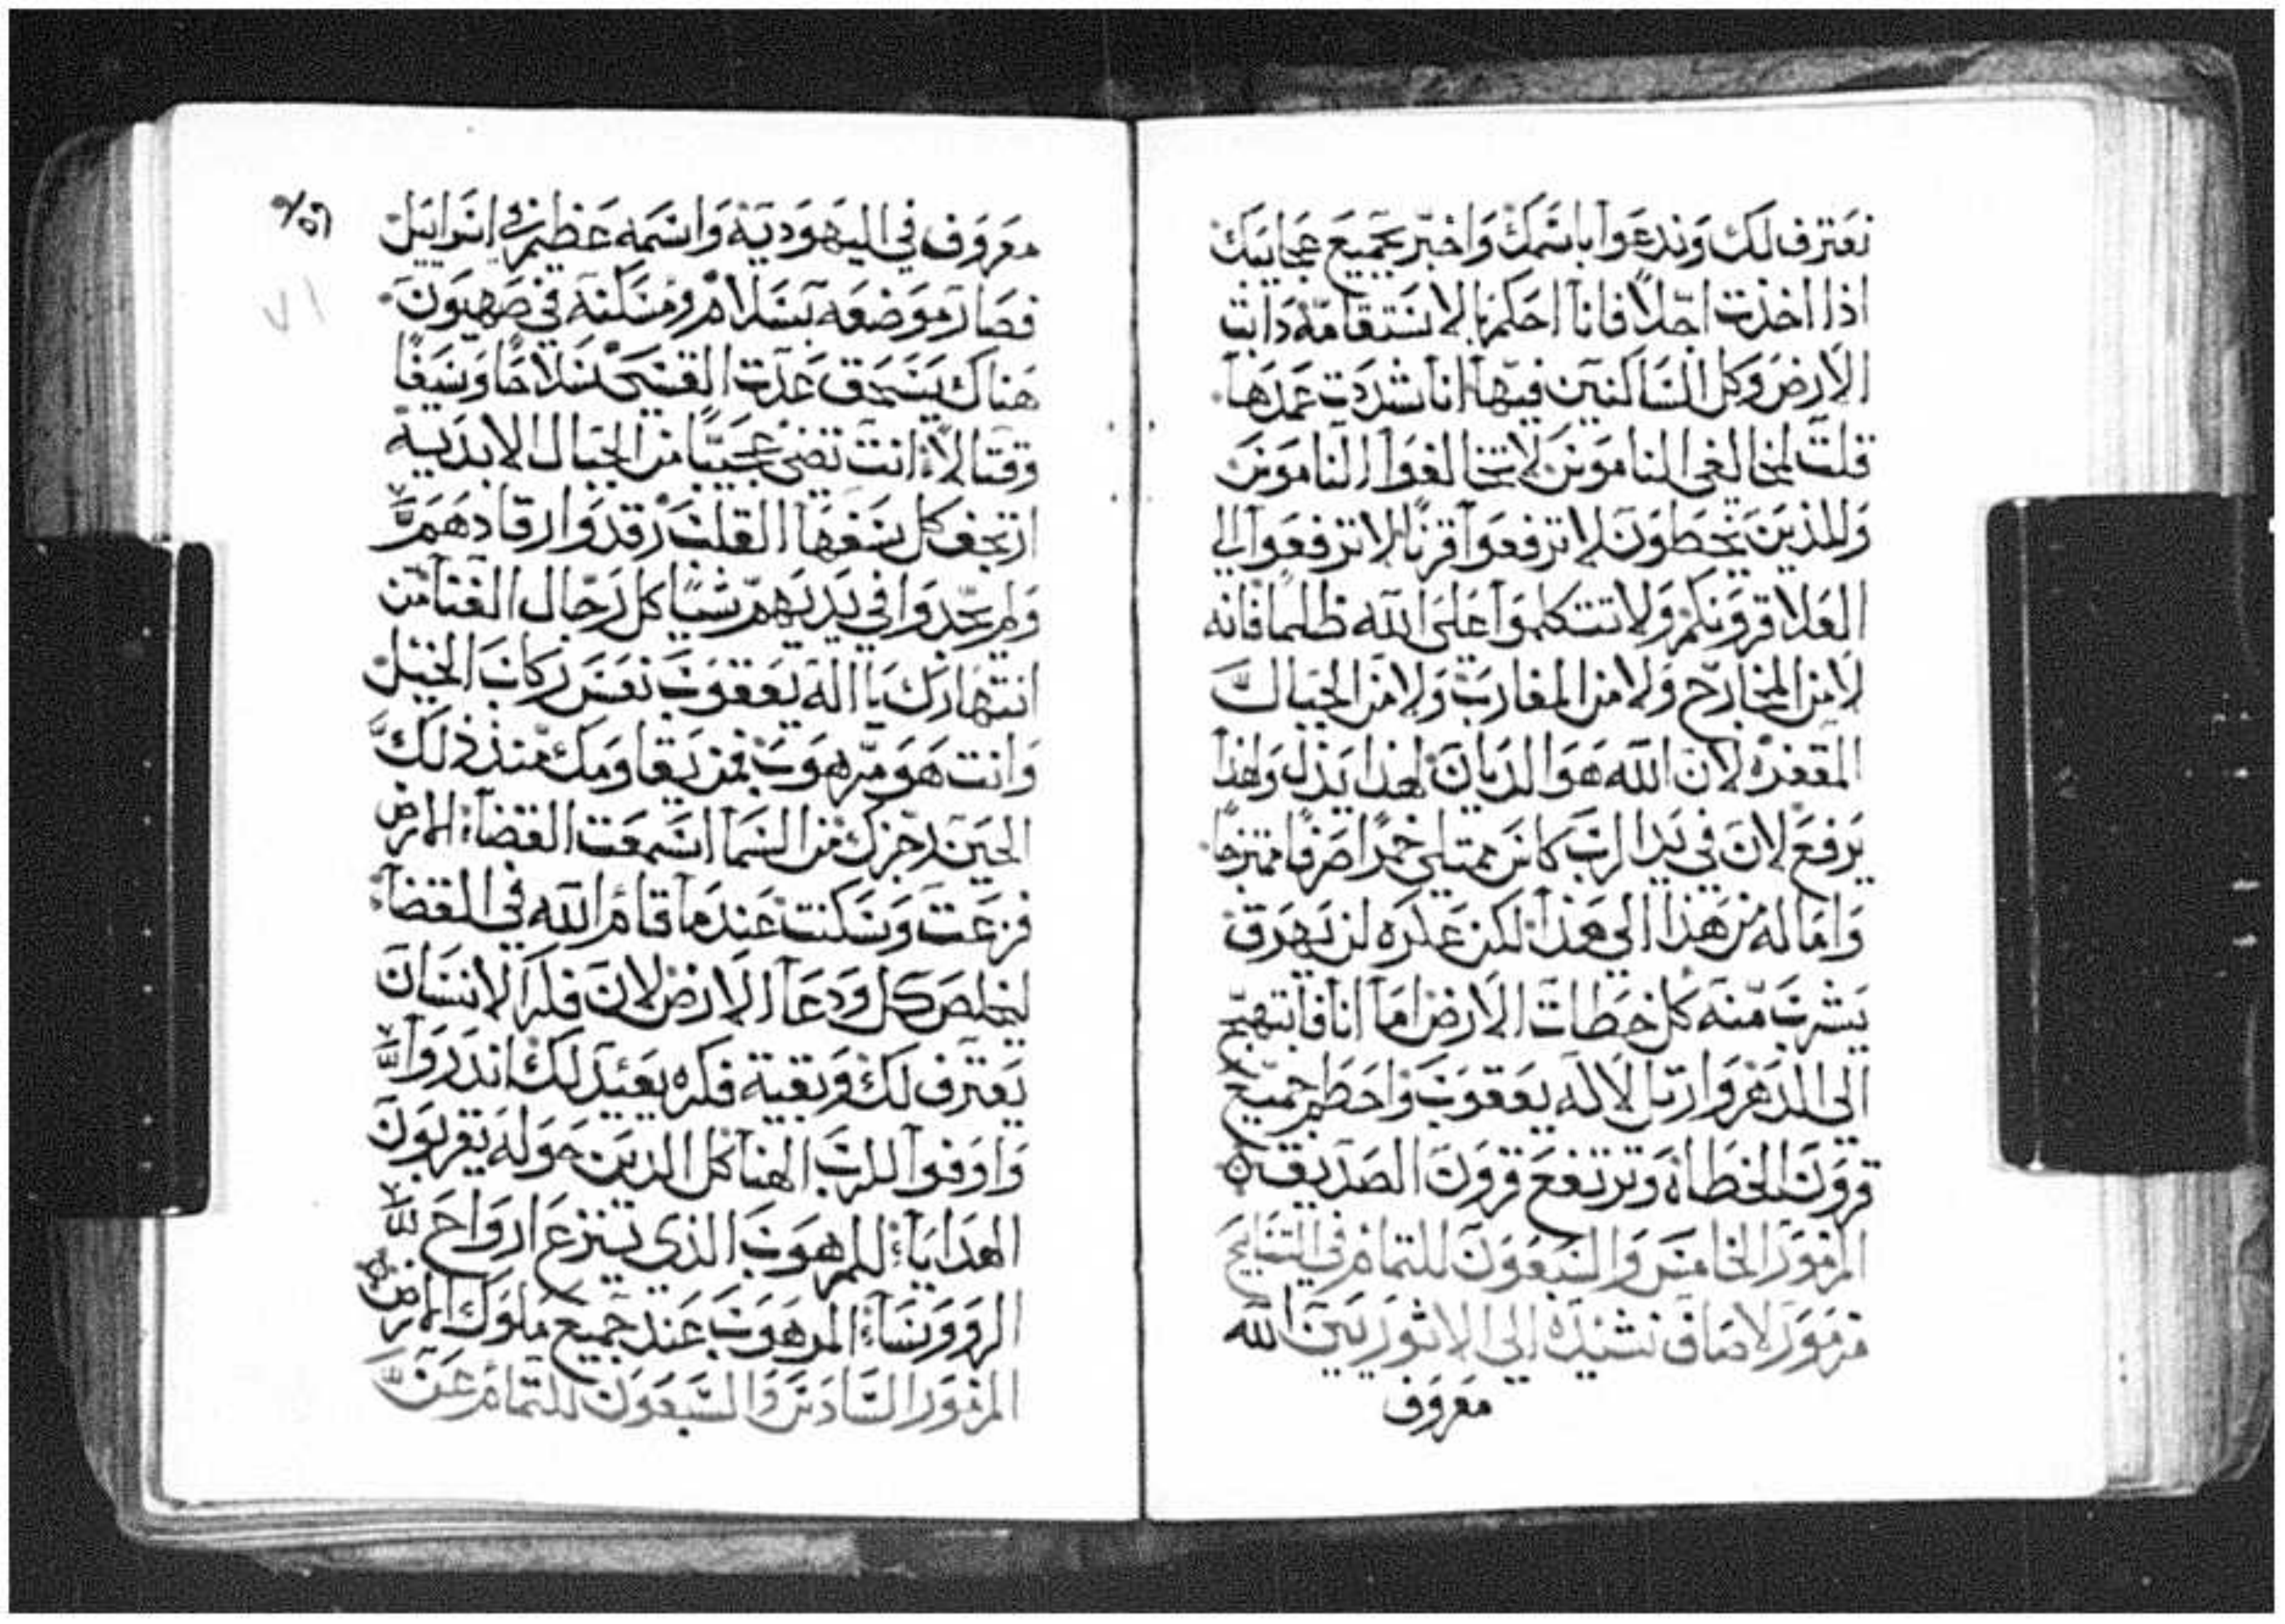 نعترف لك وندعوا باسمك واخبر بجميع عجايبك
اذا اخذت اجلا فانا احكم بالاستقامة ذابت
الارض وكل الساكنين فيها انا شددت عمدها
قلت لمخالفي الناموس لا تخالفوا الناموس
وللذين يخطون لا ترفعوا قرنا لا ترفعوا الي
العلا قرونكم ولا تتكلموا على الله ظلما فانه
لا من المخارج ولا من المغارب ولا من الجبال
المقفره لان الله هو الديان لهذا يذل ولهذا
يرفع لان في يد الرب كاس ممتلي خمرا صرفا ممتزجا
واماله من هذا الي هذا لكن عكره لن يهرق
يشرب منه كل خطات الارض اما انا فابتهج
الى الدهر وارتل لاله يعقوب واحطم جميع
قرون الخطاة وترتفع قرون الصديق
المزمور الخامس والسبعون للتمام في التسابيح
مزمور لاصاف نشيده الي الاثوريين الله
معروف
معروف في اليهودية واسمه عظيم في اسراييل
فصار موضعه بسلام ومسكنه في صهيون
هناك يسحق عدت القسي سلاحا وسيفا
وقتالا انت تضي عجيبا من الجبال الابدية
ارتجف كل سفها القلب رقدوا رقادهم
ولم يجدوا في يديهم شيا كل رجال الغنا من
انتهارك يا اله يعقوب نعس ركاب الخيل
وانت هو مرهوب فمن يقاومك منذ ذلك
الحين رجزك من السما اسمعت القضا الارض
فزعت وسكنت عندما قام الله في القضا
ليخلص كل ودعا الارض لان فكر الانسان
يعترف لك وبقية فكره يعيد لك اندروا
واوفوا للرب الهنا كل الذين حوله يقربون
الهدايا للمرهوب الذي ينزع ارواح
الروونسا المرهوب عند جميع ملوك الارض
المزمور السادس والسبعون للتمام عن